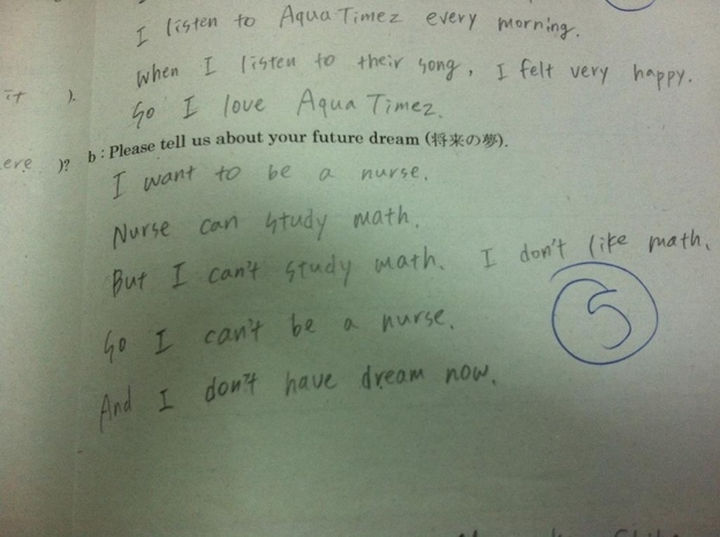 I listen to Aqua Timez every morning.
When I listen to their song, I felt very happy.
it ).
So I love Aqua Timez.
ere )?
b : Please tell us about your future dream (将来の夢).
I want to be a nurse.
Nurse can study math.
But I can't study math. I don't like math.
So I can't be a nurse.
5
And I don't have dream now.